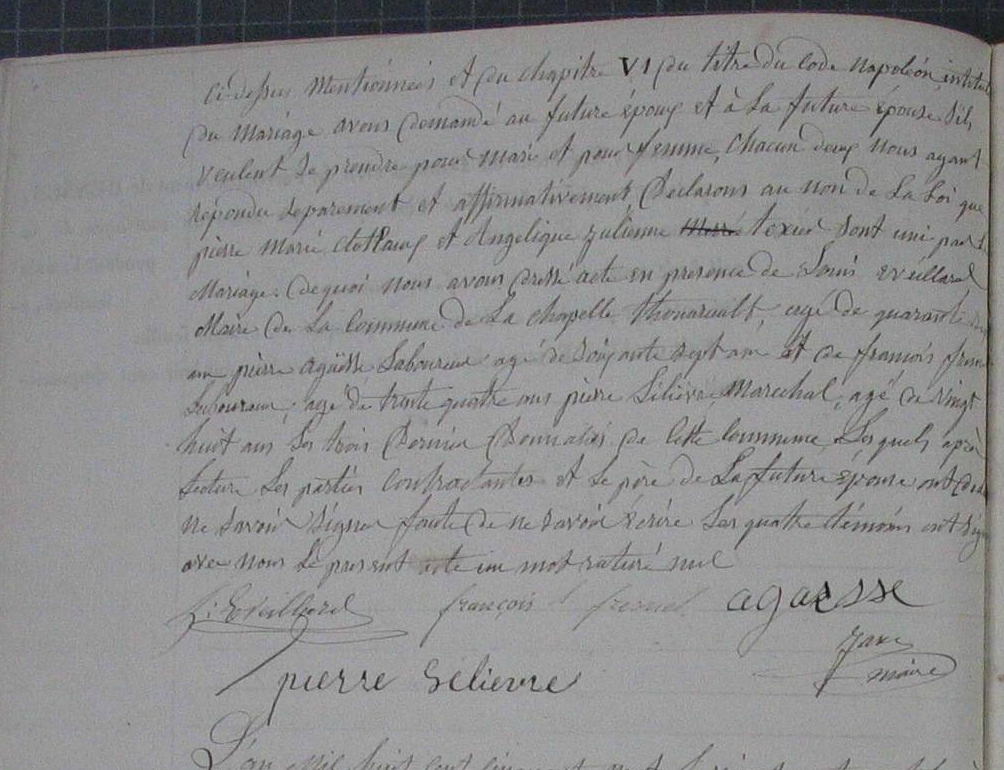 ci-dessus mentionnées et du chapitre VI du titre du Code napoléon, intitulé
du mariage avons demandé au future époux et à la future épouse s'ils
veulent se prendre pour mari et pour femme, chacun deux nous ayant
répondu séparement et affirmativement, Déclarons au nom de La Loi que
pierre Marie et Angelique julienne texier sont uni par le
Mariage. de quoi nous avons dressé acte en presence de Louis Eveillard
Maire de La Commune de La Chapelle Thouarault, agé de quarante
ans pierre agaësse Laboureur agé de soixante sept ans et de françois fresnel
Laboureur, agé de trente quatre ans pierre Lelièvre Marechal, agé de vingt
huit ans Les trois Dernier Domiciliés de Cette Commune Lesquels après
Lecture Les parties Contractantes et Le père de La future épouse ont dit
ne savoir Signer faute de ne savoir écrire Les quatre témoins ont signé
avec nous Le present acte un mot raturé nul
L. Eveillard françois fresnel agaesse
maire
pierre Lelievre
L'an mil huit cent cinquante